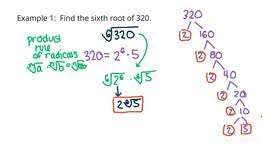 Example 1: Find the sixth root of 320.
product
rule
of radicals
ⁿ√a · ⁿ√b = ⁿ√ab
⁶√320
320 = 2⁶ · 5
⁶√2⁶ · ⁶√5
2 ⁶√5
320
2 160
2 80
2 40
2 20
2 10
2 5